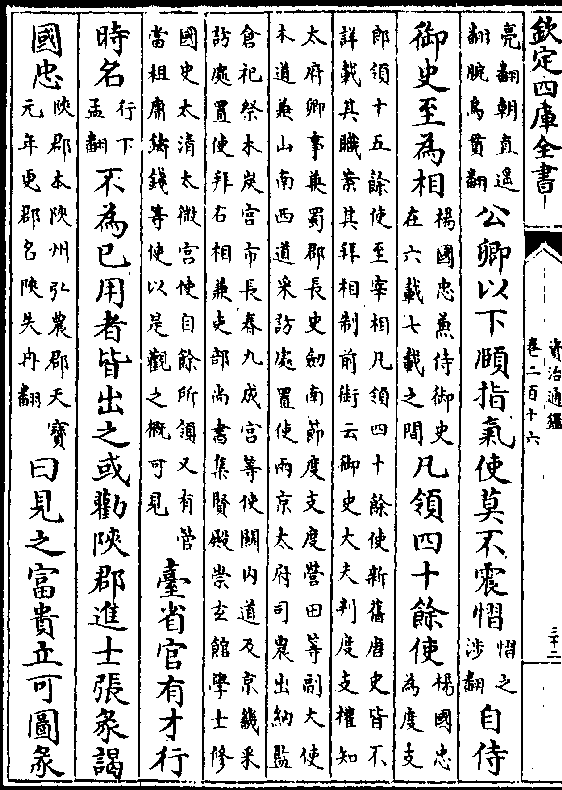 欽定四庫全書
資治通鑑
卷二百十六
三十二
亮翻朝直遥
翻腕烏貫翻
公卿以下頤指氣使莫不震慴
慴之
涉翻
自侍
御史至為相
楊國忠兼侍御史
在六載七載之間
凡領四十餘使
楊國忠
為度支
郎領十五餘使至宰相凡領四十餘使新舊唐史皆不
詳載其職案其拜相制前銜云御史大夫判度支權知
太府卿事兼蜀郡長史劒南節度支度營田等副大使
本道兼山南西道采訪處置使兩京太府司農出納監
倉祀祭木炭宫市長春九成宫等使關内道及京畿采
訪處置使拜右相兼吏部尚書集賢殿崇玄館學士修
國史太清太微宫使自餘所領又有管
當租庸鑄錢等使以是觀之概可見
臺省官有才行
時名
行下
孟翻
不為已用者皆出之或勸陜郡進士張彖謁
國忠
陜郡本陜州弘農郡天寶
元年更郡名陜失冉翻
曰見之富貴立可圖彖